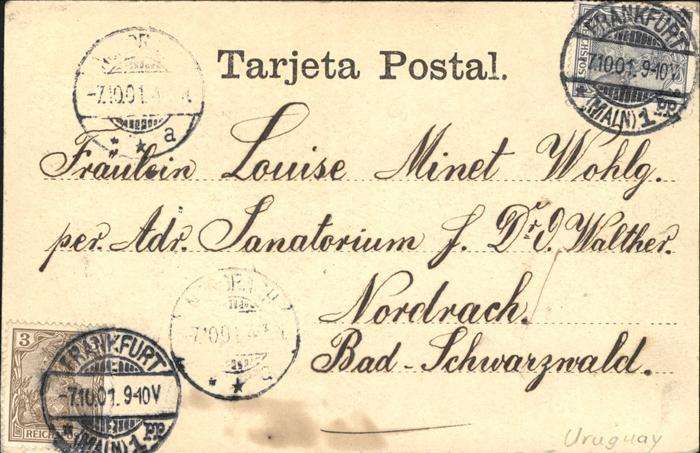 Tarjeta Postal.
FRANKFURT
7.10.01. 9-10V
* (MAIN) 1 PP
-7.10.01.4
a
Fräulein Louise Minet Wohlg.
per. Adr. Sanatorium f. Dr. O. Walther.
Nordrach.
Bad-Schwarzwald.
7.10.01
3
REICH
FRANKFURT
-7.10.01. 9-10V
* (MAIN) 1 PP
Uruguay